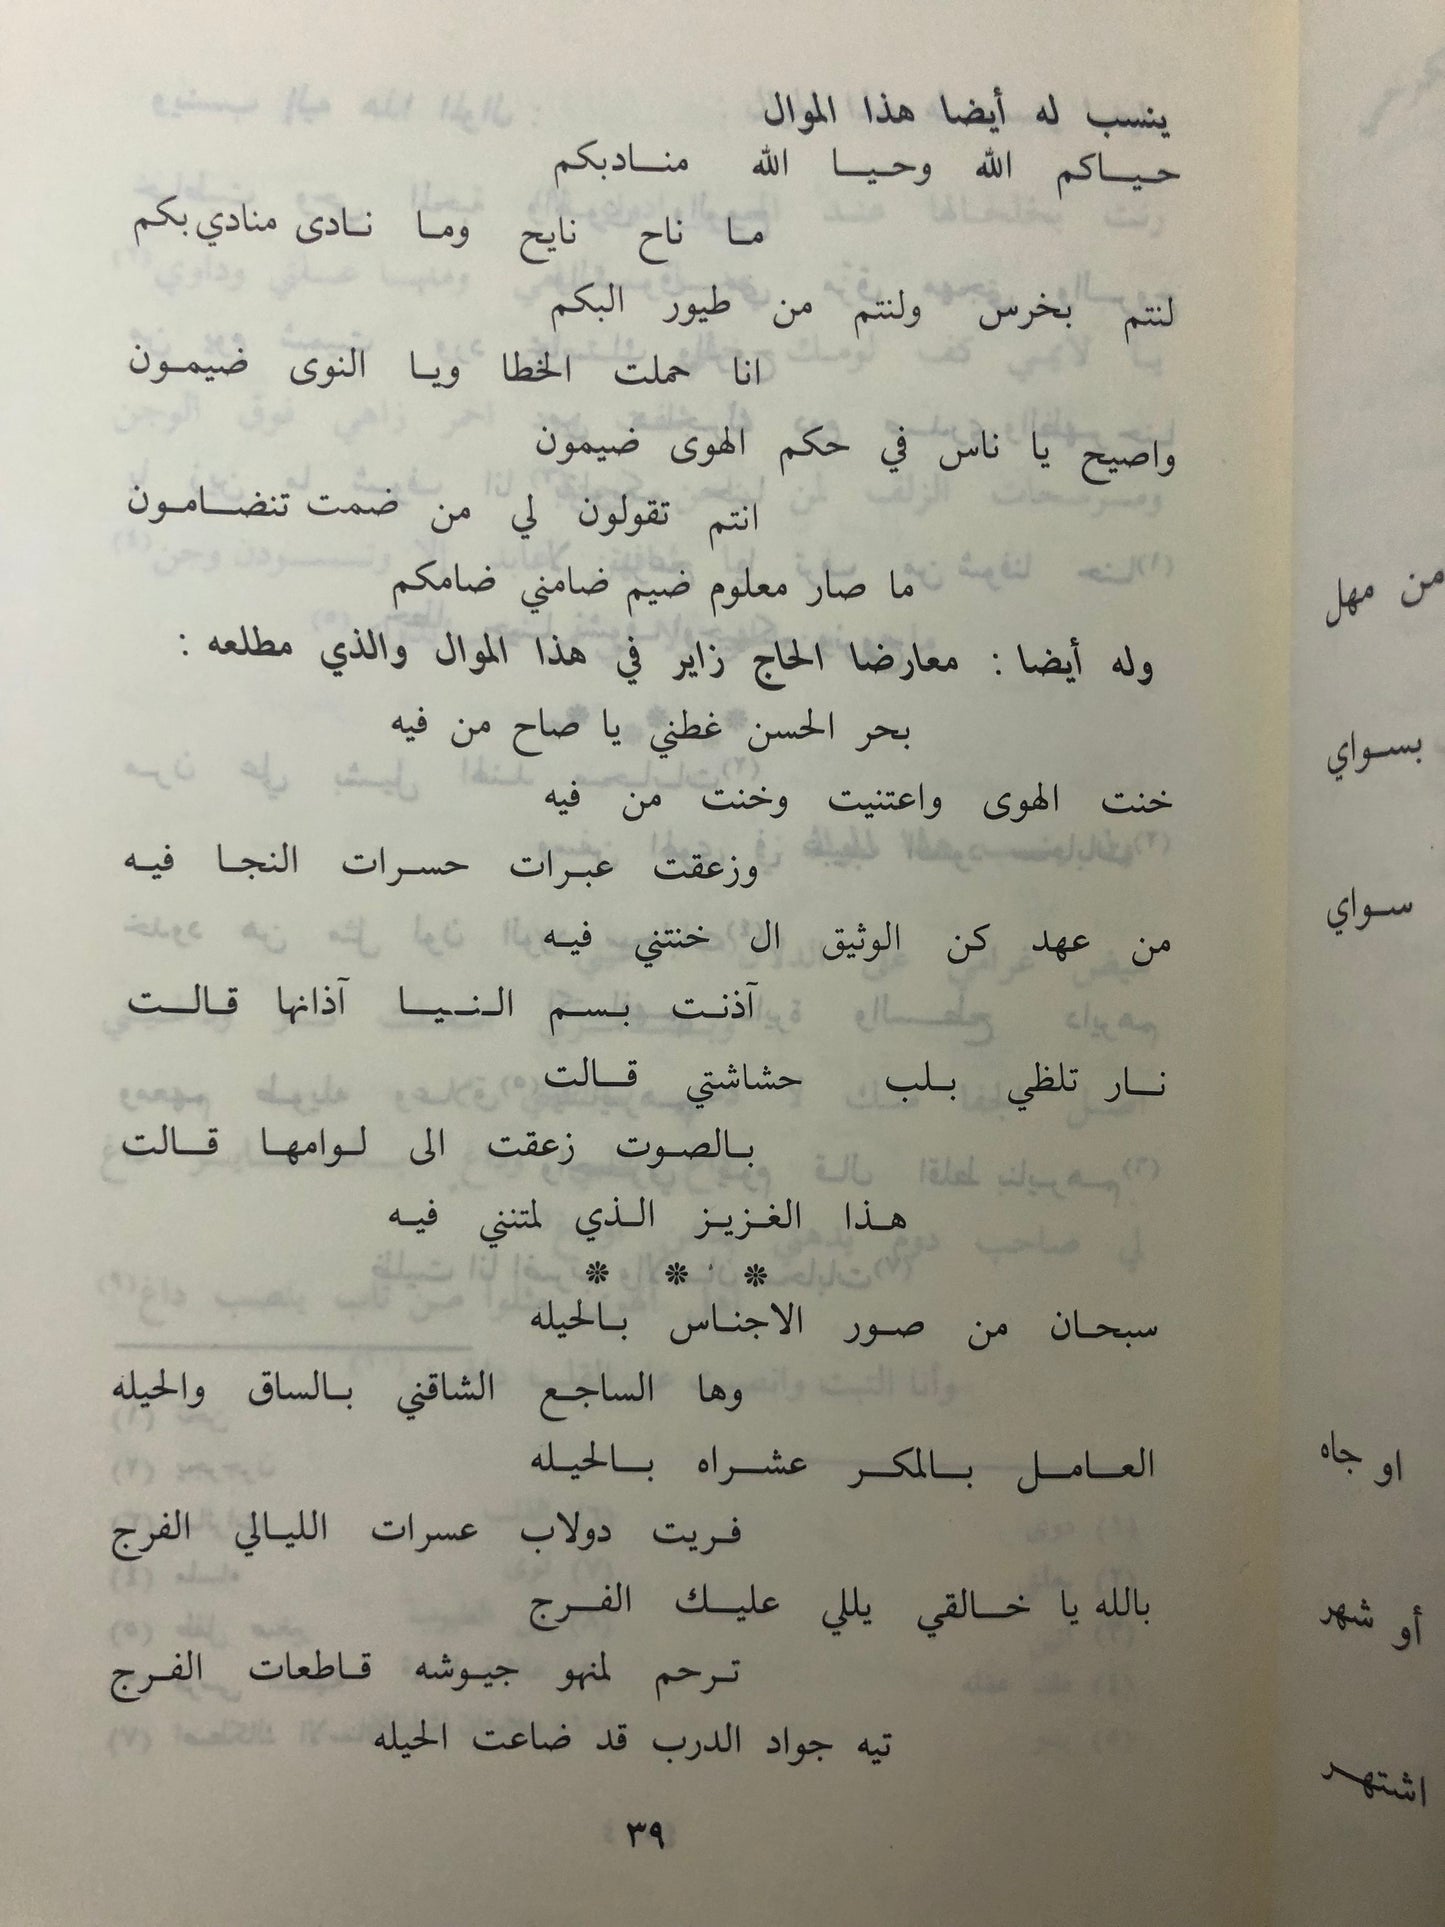 ينسب له أيضا هذا الموال
حيـاكم الله وحيـا الله منـادبكم
مـا ناح نايح ومـا نـادى منادي بكم
لنتم بخرس ولنتم من طيور البكم
انا حملت الخطا ويـا النوى ضيمـون
واصيح يا ناس في حكم الهوى ضيمون
انتم تقولون لي من ضمت تنضـامـون
ما صار معلوم ضيم ضامني ضامكم
وله أيضا : معارضا الحاج زاير في هذا الموال والذي مطلعه :
بحر الحسن غطني يا صاح من فيه
خنت الهوى واعتنيت وخنت من فيه
وزعقت عبـرات حسـرات النجـا فيـه
من عهد كن الوثيق ال خنتني فيـه
آذنـت بـسـم الـنـيـا آذانها قـالـت
نـار تلظي بـلب حشاشتي قـالت
بـالصـوت زعقت الى لـوامهـا قـالت
هـذا الغـزيـز الـذي لمتنني فيـه
* * *
سبحـان من صـور الاجنـاس بـالحيله
وها الساجـع الشاقني بـالساق والحيله
العـامـل بـالمكـر عشـراه بـالحيـله
فـريت دولاب عسرات الليـالي الفرج
بالله يا خـالقي يللي عليـك الفـرج
تـرحم لمنهو جيـوشه قـاطعات الفـرج
تيه جواد الدرب قد ضاعت الحيله
٣٩
من مهل
بسـواي
سـواي
او جاه
أو شهر
اشتهر